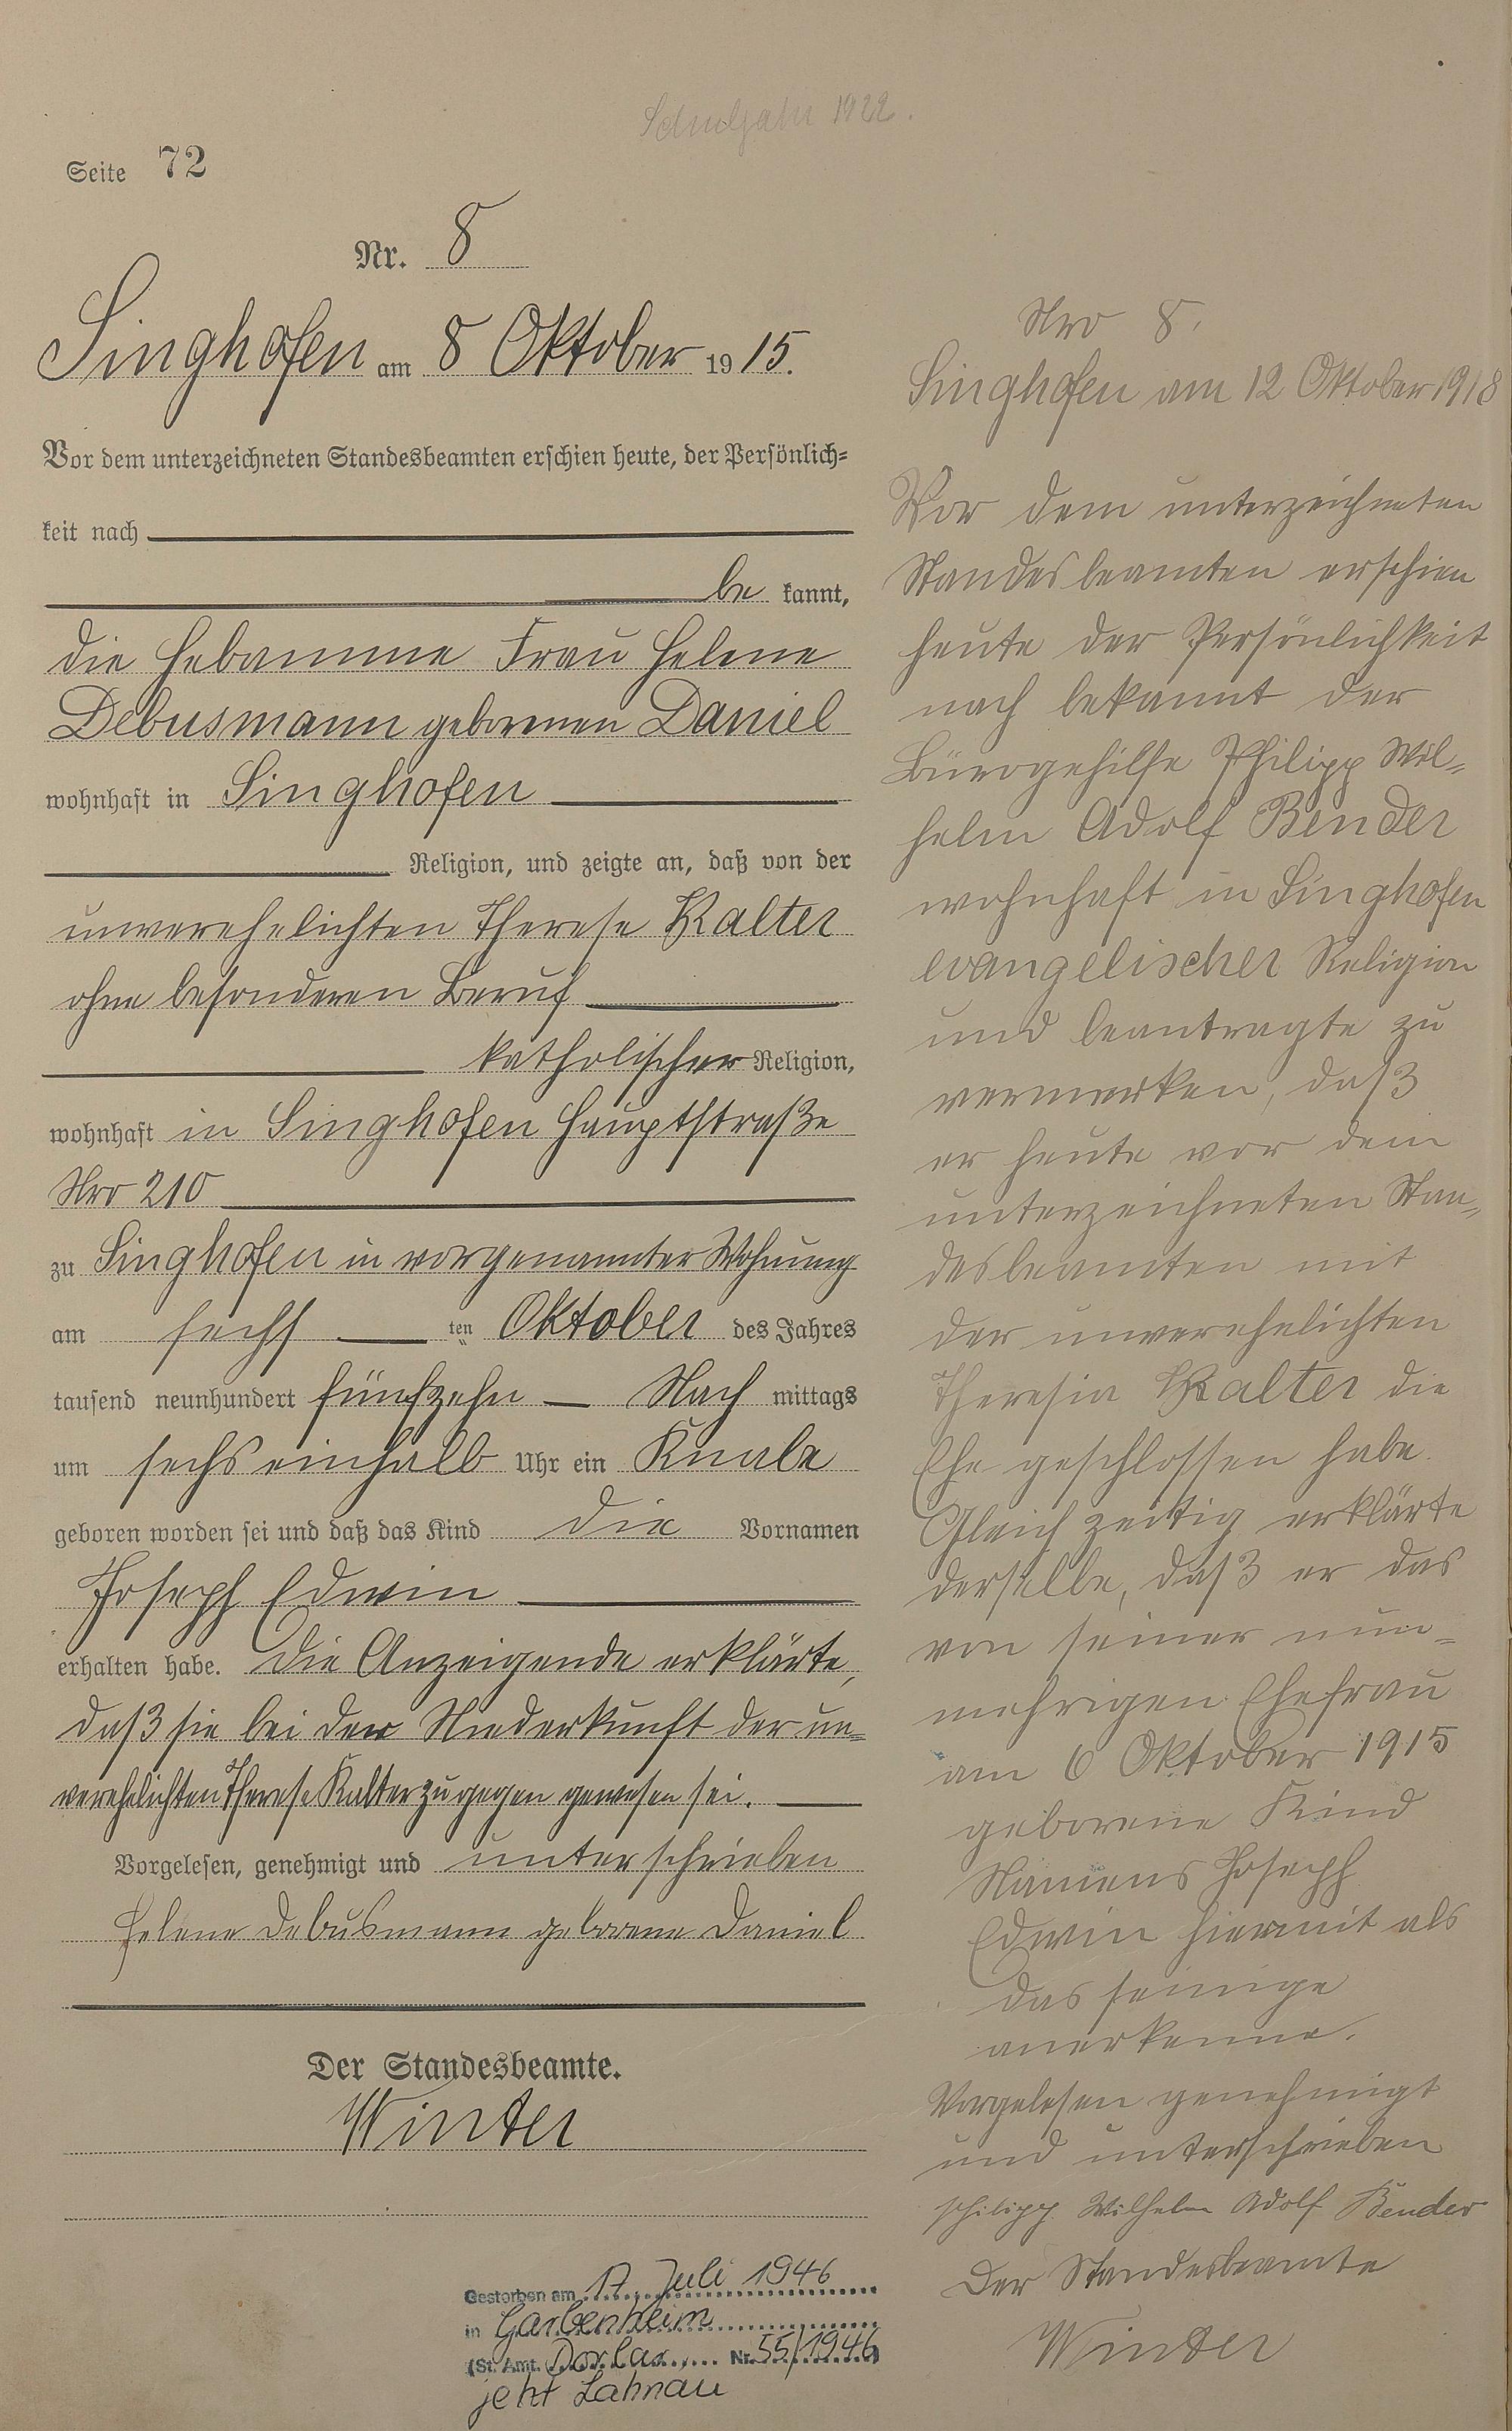 Schuljahr 1922.
Seite 72
Nr. 8
Singhofen am 8 Oktober 1915.
Vor dem unterzeichneten Standesbeamten erschien heute, der Persönlich=
keit nach
be kannt,
die Hebamme Frau Helene
Debusmann geborenen Daniel
wohnhaft in Singhofen
Religion, und zeigte an, daß von der
unverehelichten Therese Kalter
ohne besonderen Beruf
katholischer Religion,
wohnhaft in Singhofen Hauptstraße
Nro 210
zu Singhofen in vorgenannter Wohnung
am sechs ten Oktober des Jahres
tausend neunhundert fünfzehn Nach mittags
um sechs einhalb Uhr ein Knabe
geboren worden sei und daß das Kind die Vornamen
Joseph Edwin
erhalten habe. Die Anzeigende erklärte,
daß sie bei der Niederkunft der un=
verehelichten Therese Kalter zugegen gewesen sei.
Vorgelesen, genehmigt und unterschrieben
Helene Debusmann geborene Daniel
Der Standesbeamte.
Winter
Gestorben am 17. Juli 1946
in Garbenheim
(St. Amt. Dorlar Nr. 55/1946)
jetzt Lahnau
Nro 8.
Singhofen am 12 Oktober 1918
Vor dem unterzeichneten
Standesbeamten erschien
heute der Persönlichkeit
nach bekannt der
Bürogehilfe Philipp Wil=
helm Adolf Bender
wohnhaft in Singhofen
evangelischer Religion
und beantragte zu
vermerken, daß
er heute vor dem
unterzeichneten Stan=
desbeamten mit
der unverehelichten
Theresia Kalter die
Ehe geschlossen habe.
Gleich zeitig erklärte
derselbe, daß er das
von seiner nun=
mehrigen Ehefrau
am 6 Oktober 1915
geborene Kind
Namens Joseph
Edwin hiermit als
das seinige
anerkenne.
Vorgelesen genehmigt
und unterschrieben
Philipp Wilhelm Adolf Bender
Der Standesbeamte
Winter